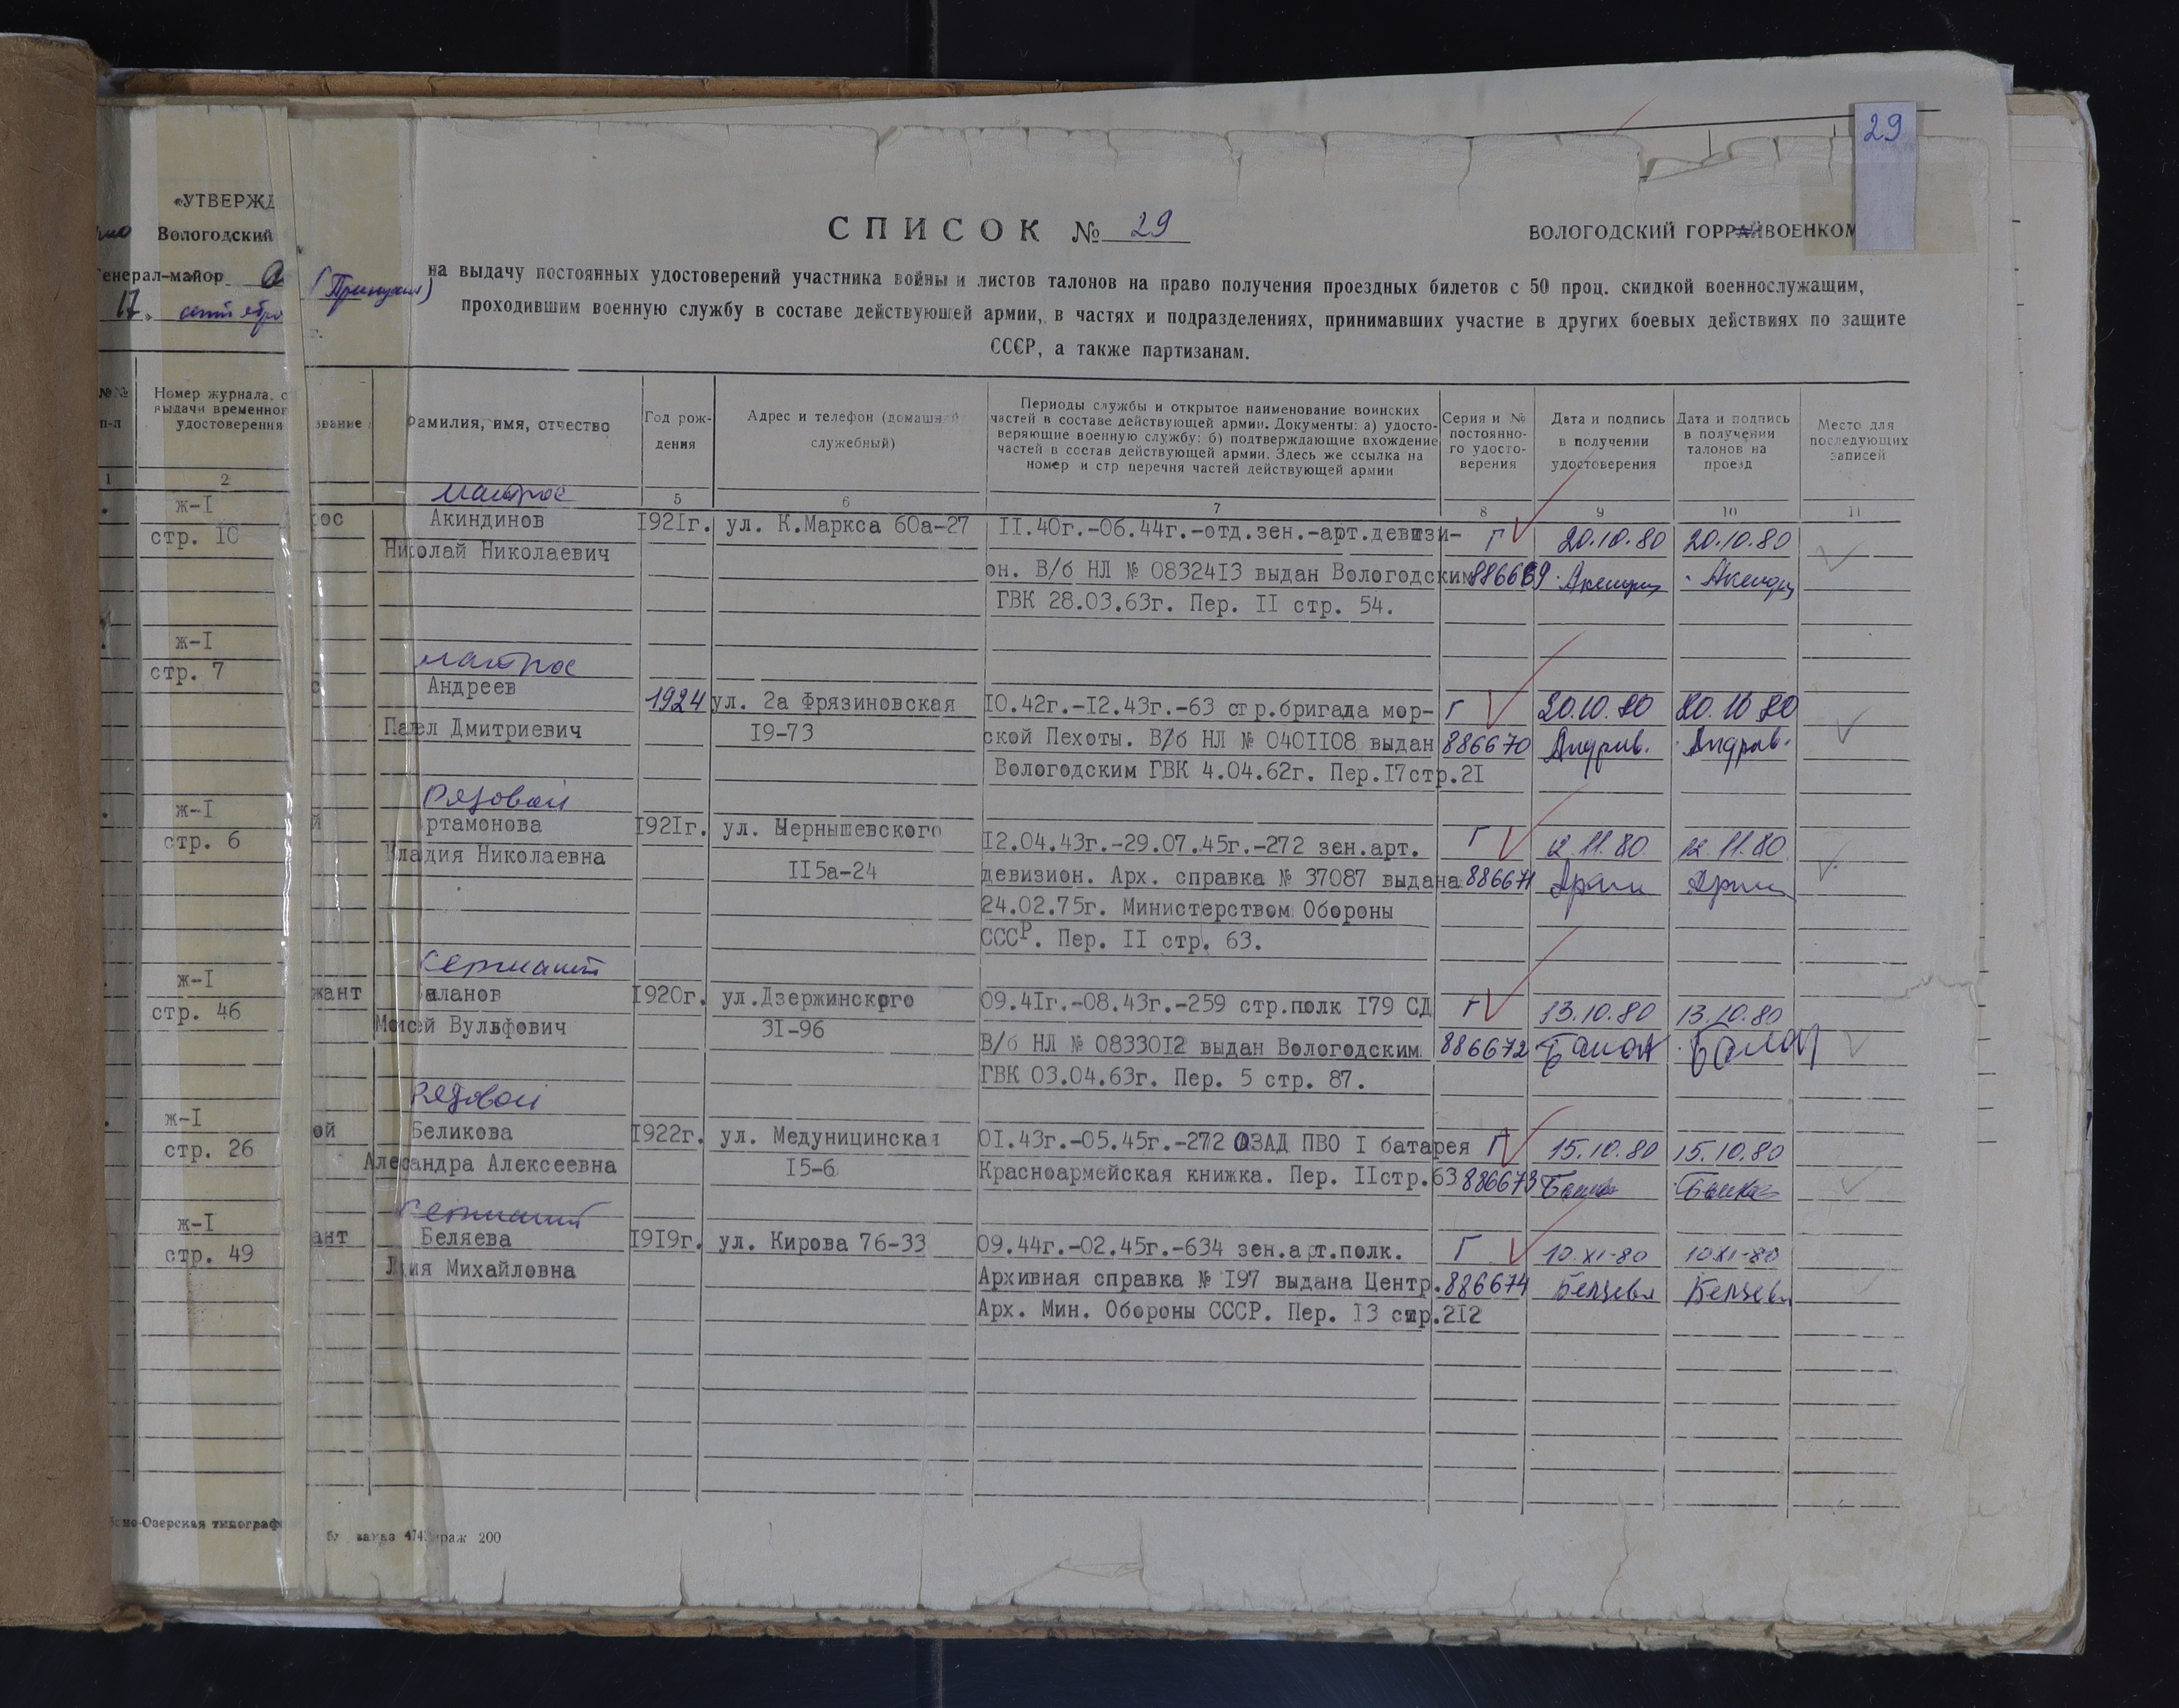 29
«УТВЕРЖД
Вологодский
Генерал-майор
17 сентября
СПИСОК № 29
ВОЛОГОДСКИЙ ГОРРАЙВОЕНКОМ
на выдачу постоянных удостоверений участника войны и листов талонов на право получения проездных билетов с 50 проц. скидкой военнослужащим,
проходившим военную службу в составе действующей армии, в частях и подразделениях, принимавших участие в других боевых действиях по защите
СССР, а также партизанам.
№№ п-п
Номер журнала, с
выдачи временног
удостоверения
звание
Фамилия, имя, отчество
Год рож-
дения
Адрес и телефон (домашний
служебный)
Периоды службы и открытое наименование воинских
частей в составе действующей армии. Документы: а) удосто-
веряющие военную службу: б) подтверждающие вхождение
частей в состав действующей армии. Здесь же ссылка на
номер и стр перечня частей действующей армии
Серия и №
постоянно-
го удосто-
верения
Дата и подпись
в получении
удостоверения
Дата и подпись
в получении
талонов на
проезд
Место для
последующих
записей
1 2 5 6 7 8 9 10 11
матрос
ж-I рос Акиндинов 1921г. ул. К.Маркса 60а-27 11.40г.-06.44г.-отд.зен.-арт.девизи- Г 20.10.80 20.10.80
стр. 10 Николай Николаевич он. В/б НЛ № 0832413 выдан Вологодским 886669
ГВК 28.03.63г. Пер. II стр. 54.
матрос
ж-I с Андреев 1924 ул. 2а Фрязиновская 10.42г.-12.43г.-63 стр.бригада мор- Г 20.10.80 20.10.80
стр. 7 Павел Дмитриевич 19-73 ской Пехоты. В/б НЛ № 0401108 выдан 886670
Вологодским ГВК 4.04.62г. Пер.17стр.21
рядовой
ж-I й Артамонова 1921г. ул. Чернышевского 12.04.43г.-29.07.45г.-272 зен.арт. Г 12.11.80. 12.11.80
стр. 6 Кладия Николаевна 115а-24 девизион. Арх. справка № 37087 выдана 886671
24.02.75г. Министерством Обороны
СССР. Пер. II стр. 63.
сержант
ж-I жант Баланов 1920г. ул.Дзержинского 09.41г.-08.43г.-259 стр.полк 179 СД Г 13.10.80 13.10.80
стр. 46 Моисей Вульфович 31-96 В/б НЛ № 0833012 выдан Вологодским 886672
ГВК 03.04.63г. Пер. 5 стр. 87.
рядовой
ж-I ой Беликова 1922г. ул. Медуницинская 01.43г.-05.45г.-272 ОЗАД ПВО I батарея Г 15.10.80 15.10.80
стр. 26 Алесандра Алексеевна 15-6 Красноармейская книжка. Пер. IIстр.63 886673
сержант
ж-I ант Беляева 1919г. ул. Кирова 76-33 09.44г.-02.45г.-634 зен.арт.полк. Г 10.XI-80 10.XI-80
стр. 49 Михайловна Архивная справка № 197 выдана Центр. 886674 Беляева Беляева
Арх. Мин. Обороны СССР. Пер. 13 стр.212
но-Озерская типограф
заказ 474 раж 200